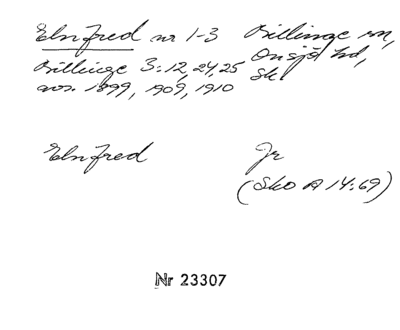 Elnfred nr 1-3 Billinge sn,
Billinge 3:12, 24, 25 Onsjö hd,
avs. 1899, 1909, 1910 Sk
Elnfred Jr
(Sko A 14:69)
Nr 23307